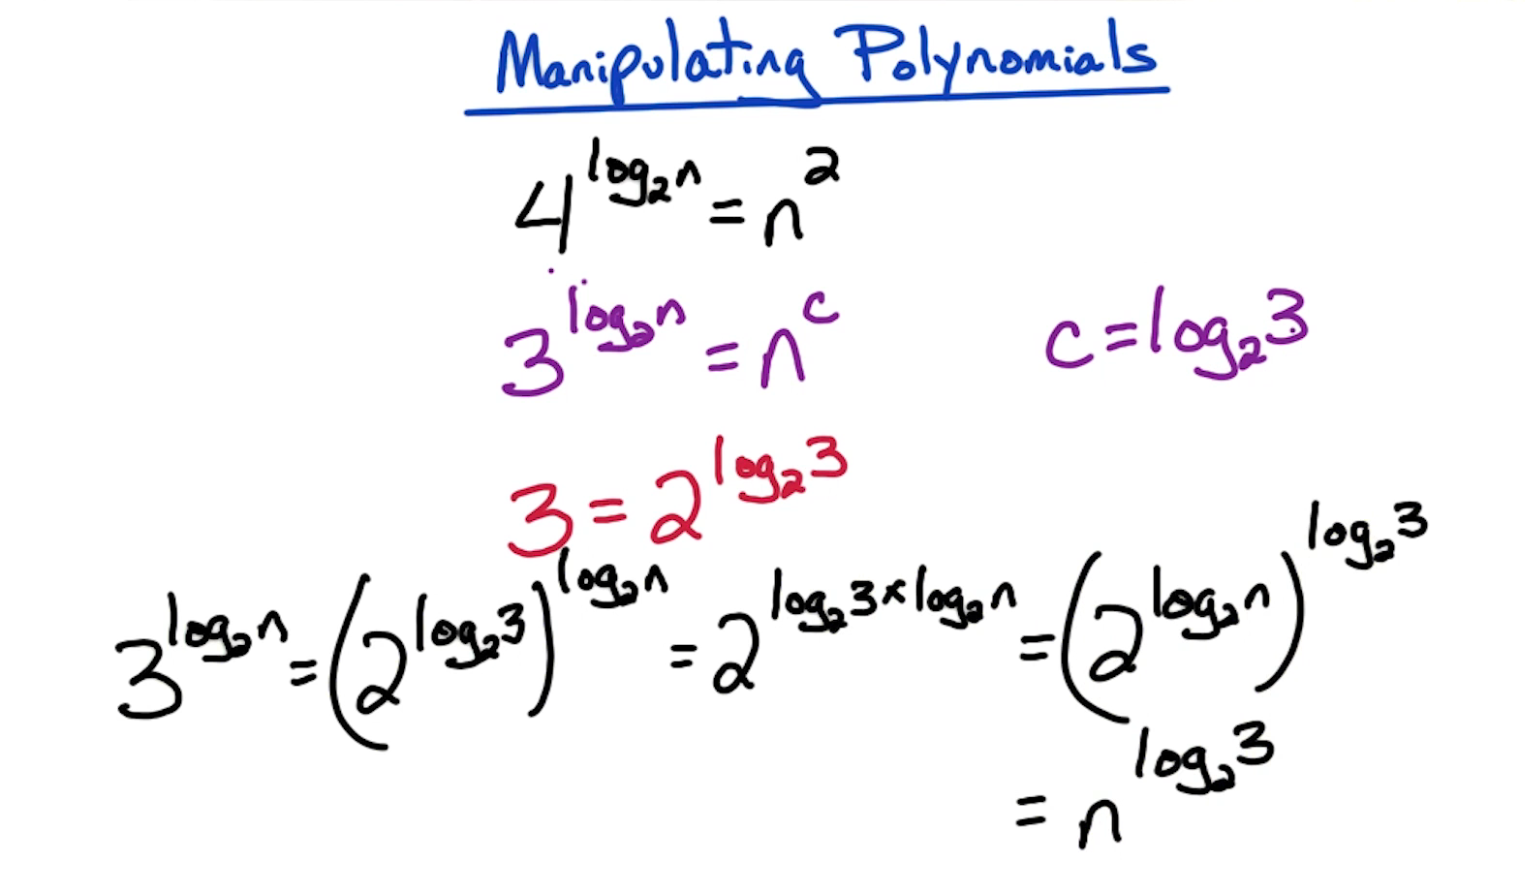 Manipulating Polynomials
4^{log_2 n} = n^2
3^{log_2 n} = n^c
c = log_2 3
3 = 2^{log_2 3}
3^{log_2 n} = (2^{log_2 3})^{log_2 n} = 2^{log_2 3 × log_2 n} = (2^{log_2 n})^{log_2 3}
= n^{log_2 3}